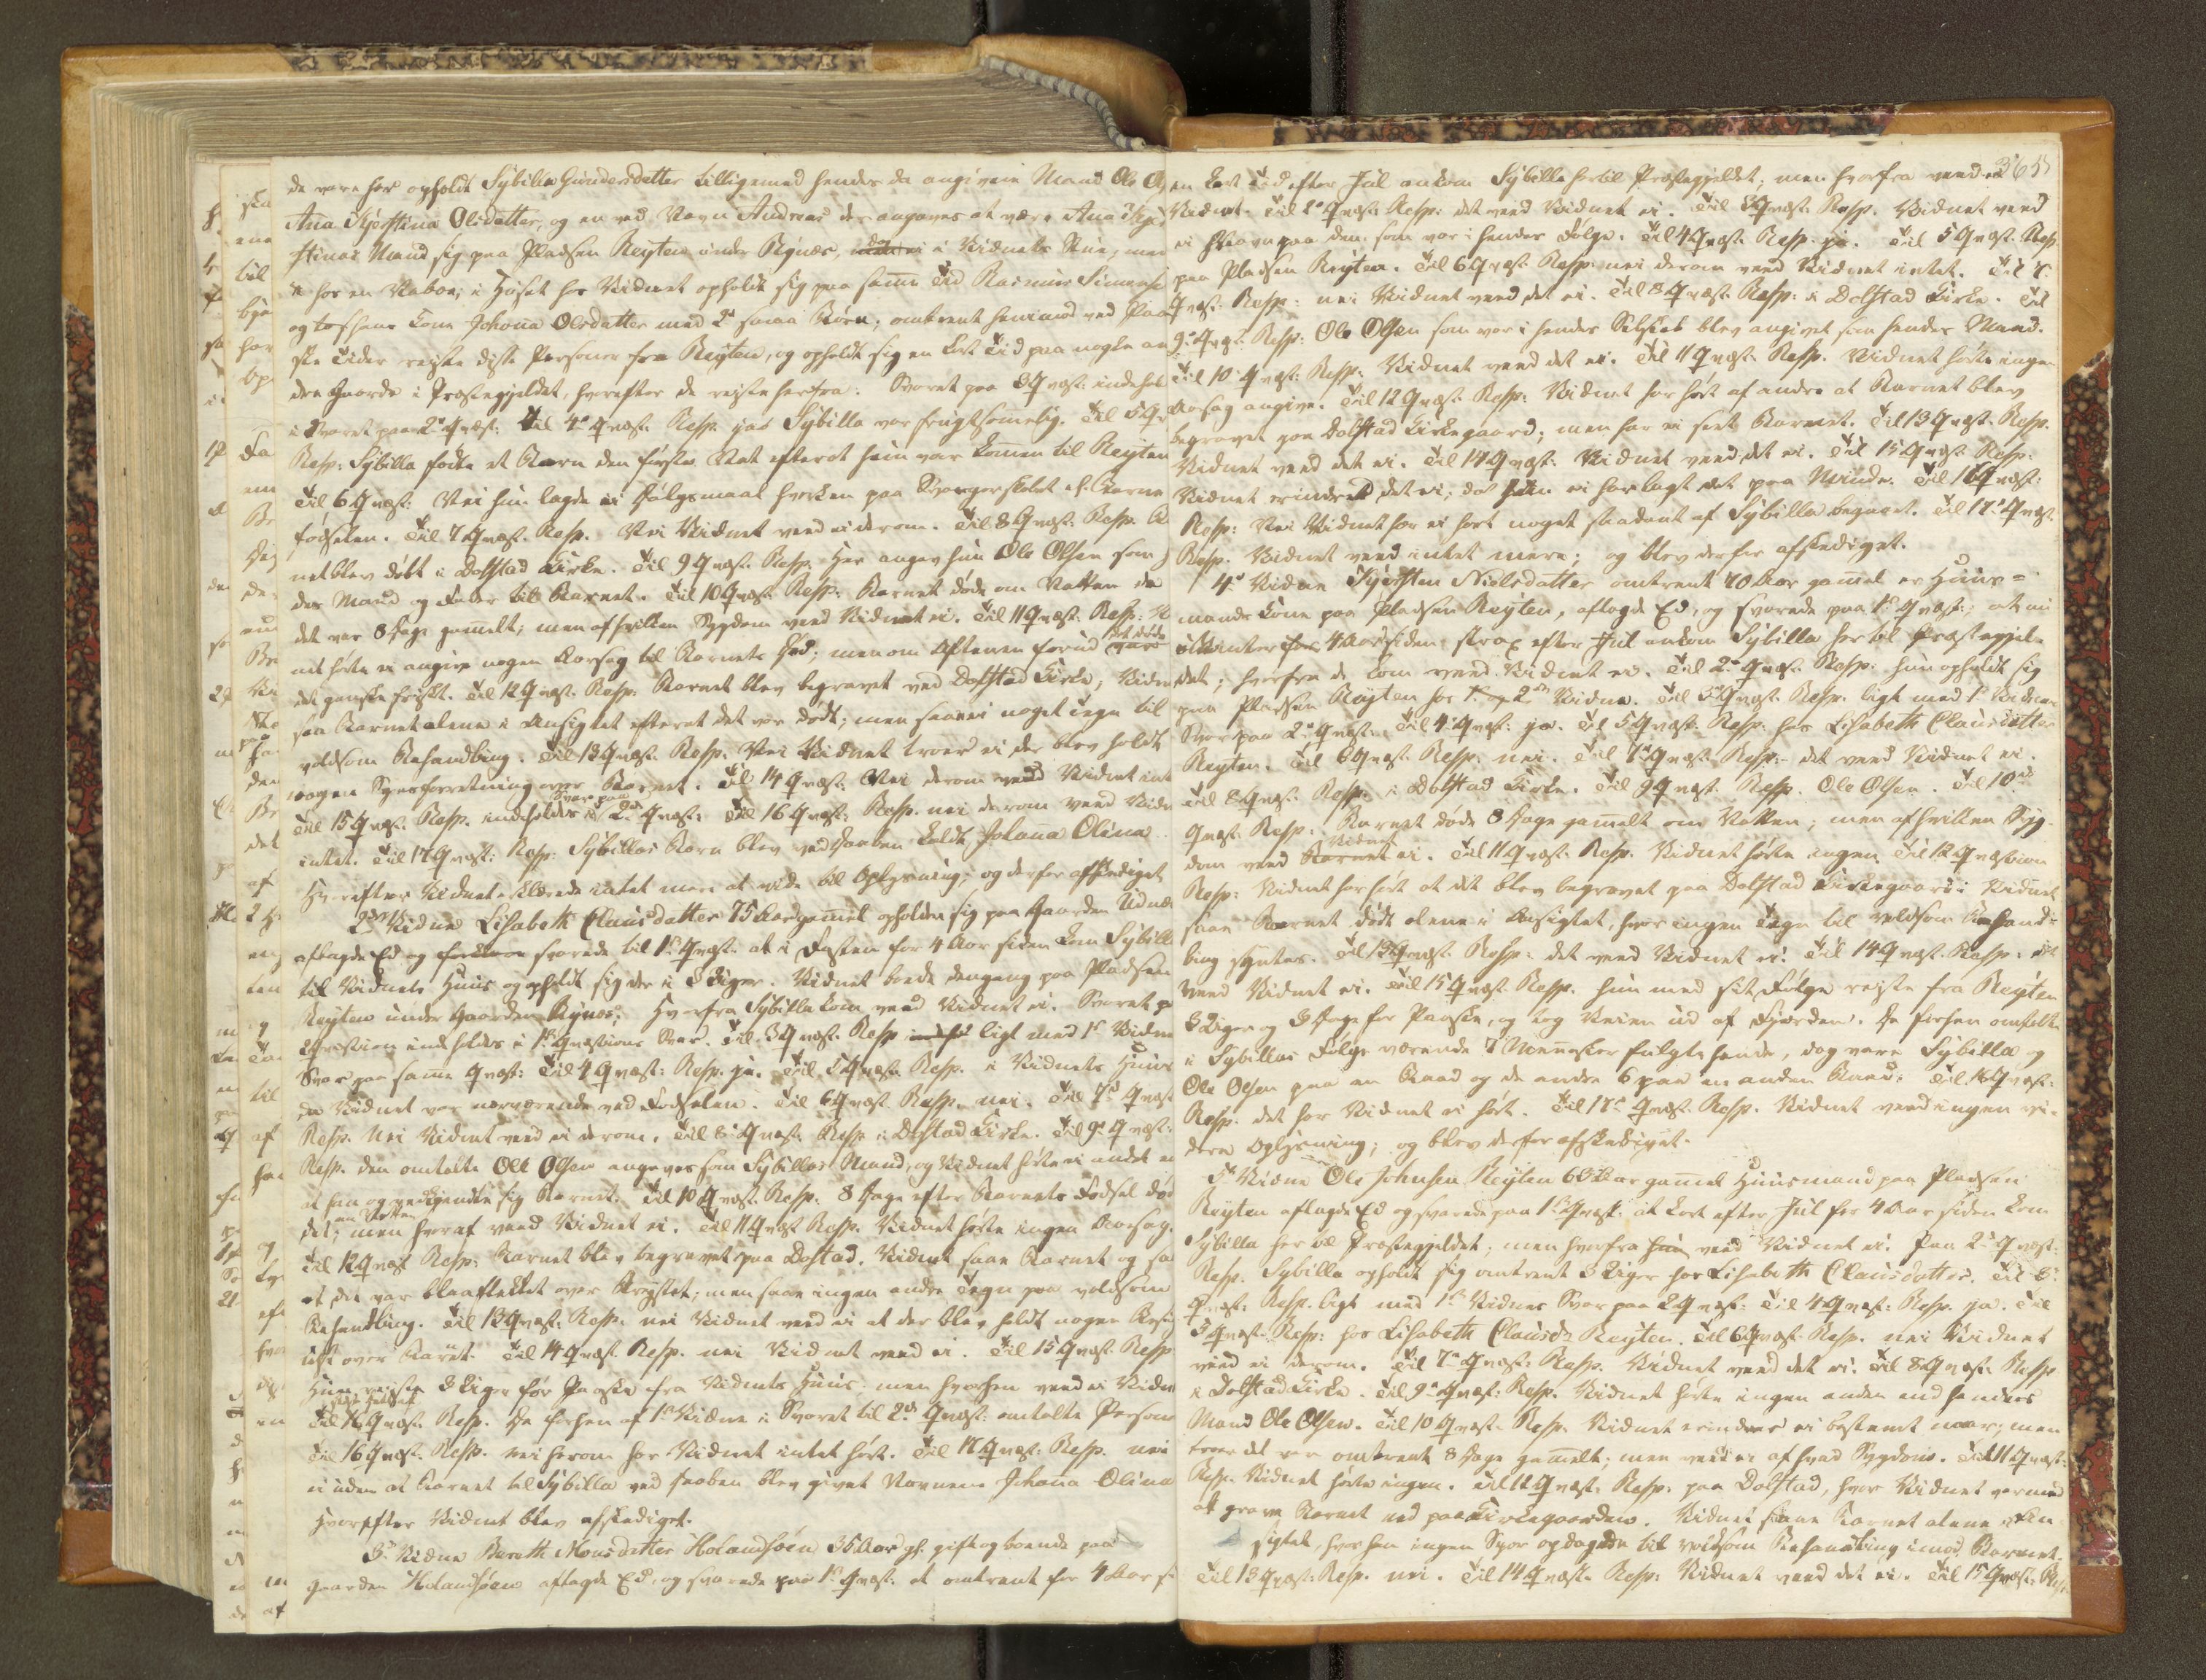 de vare her opholdt Sybilla Gundersdatter tilligemed hendes da angivne Mand Ole Ol
Ana Kjerstina Olsdatter, og en ved Navn Andreas der angaves at være Ana Kjer
stinas Mand sig paa Pladsen Reyten under Rynes, i Vidnets Huus, men
hos en Naboe; i Huset hos Vidnet opholdt sig paa samme Tid Rasmus Simonse
og hos ham kom Johanna Olsdatter med 2de smaa Børn; omtrent henimod ved Paa
ske Tider reiste disse Personer fra Reyten, og opholdt sig en kort Tid paa nogle an
dre Gaarde i Præstegjeldet, hvorefter de reiste herfra. Svaret paa 3 Qvæst: indehol
i Svaret paa 2den Qvæst: Til 4de Qvæst: Resp. ja Sybilla var frugtsommelig. Til 5 Qv
Resp: Sybilla fødte et Barn den første Nat efterat hun var kommen til Reyten
Til 6 Qvæst: Nei hun lagde ei Dølgsmaal hverken paa Svangerskabet el. Barne
fødselen. Til 7 Qvæst. Resp. Nei Vidnet veed ei derom. Til 8 Qvæst: Resp. Ba
net blev døbt i Dolstad Kirke. Til 9 Qvæst. Resp. Her angav hun Ole Olsen som
des Mand og Fader til Barnet. Til 10 Qvæst. Resp: Barnet døde om Natten da
det var 8 Dage gammelt; men af hvilken Sygdom veed Vidnet ei. Til 11 Qvæst: Resp: Vi
net hørte ei angive nogen Aarsag til Barnets Død; men om Aftenen forud det døde var
det ganske friskt. Til 12 Qvæst. Resp: Barnet blev begravet ved Dolstad Kirke; Vidne
saa Barnet alene i Ansigtet efterat det var dødt; men saae ei noget Tegn til
voldsom Behandling. Til 13 Qvæst. Resp. Nei Vidnet troer ei der blev holdt
nogen Synsforretning over Barnet. Til 14 Qvæst: Nei derom veed Vidnet int
Til 15 Qvæst. Resp. indeholdes i Svar paa 2den Qvæst: Til 16 Qvæst: Resp. nei derom veed Vidn
intet. Til 17 Qvæst: Resp: Sybillas Barn blev ved Daaben kaldt Johanna Olina.
Hvorefter Vidnet erklærede intet mere at vide til Oplysning; og derfor afskediget.
2det Vidne Lisabeth Clausdatter 75 Aar gammel opholder sig paa Gaarden Udnæ
aflagde Ed og svarede til 1ste Qvæst. at i Fasten for 4 Aar siden kom Sybilla
til Vidnets Huus og opholdt sig der i 3 Uger. Vidnet boede dengang paa Pladsen
Reyten under Gaarden Rynes; Hvorfra Sybilla kom veed Vidnet ei. Svaret p
Qvestion indeholdes i 1ste Qvestions Svar. Til 3 Qvæst. Resp ligt med 1ste Vidnes
Svar paa samme Qvæst: Til 4 Qvæst: Resp. ja. Til 5 Qvæst. Resp. i Vidnets Huus
da Vidnet var nærværende ved Fødselen. Til 6 Qvæst. Resp. nei. Til 7de Qvæst
Resp. Nei Vidnet veed ei derom. Til 8de Qvæst: Resp i Dolstad Kirke. Til 9de Qvæst:
Resp. den omtalte Ole Olsen angaves som Sybillas Mand, og Vidnet hørte ei andet en
at han og vedkjendte sig Barnet. Til 10 Qvæst. Resp. 8 Dage efter Barnets Fødsel død
det om Natten; men hvoraf veed Vidnet ei. Til 11 Qvæst Resp. Vidnet hørte ingen Aarsag.
Til 12 Qvæst Resp: Barnet blev begravet paa Dolstad. Vidnet saae Barnet og saa
at det var blaaflekket over Brystet; men saae ingen andre Tegn paa voldsom
Behandling. Til 13 Qvæst. Resp: nei Vidnet veed ei at der blev holdt nogen Besig
telse over Barnet. Til 14 Qvæst. Resp. nei Vidnet veed ei. Til 15 Qvæst. Resp
Hun reiste 3 Uger før Paaske fra Vidnets Huus men hvorhen veed ei Vidne
Resp. De forhen af 1ste Vidne i Svaret til 2det Qvæst: omtalte Persone
Til 16 Qvæst. Resp. nei herom har Vidnet intet hørt. Til 17 Qvæst: Resp. nei
ei uden at Barnet til Sybilla ved Daaben blev givet Navnene Johanna Olina
Hvorefter Vidnet blev afskediget.
3die Vidne Bereth Monsdatter Holandsøen 36 Aar gl. gift og boende paa
Gaarden Holandsøen aflagde Ed, og svarede paa 1ste Qvæst: at omtrent for 4 Aar si
365
en kort Tid efter Jul ankom Sybilla hertil Præstegjeldet; men hvorfra veed ei
Vidnet. Til 2den Qvæst: Resp: det veed Vidnet ei. Til 3 Qvæst: Resp. Vidnet veed
ei Navn paa dem som var i hendes Følge. Til 4 Qvæst. Resp. ja. Til 5 Qvæst. Resp.
paa Pladsen Reyten. Til 6 Qvæst. Resp: nei derom veed Vidnet intet. Til 7de
Qvæst: Resp: nei Vidnet veed det ei. Til 8 Qvæst. Resp: i Dolstad Kirke. Til
9de Qvæst: Resp: Ole Olsen som var i hendes Selskab blev angivet som hendes Mand.
Til 10 Qvæst: Resp: Vidnet veed det ei. Til 11 Qvæst. Resp. Vidnet hørte ingen
Aarsag angive. Til 12 Qvæst: Resp: Vidnet har hørt af andre at Barnet blev
begravet paa Dolstad Kirkegaard; men har ei seet Barnet. Til 13 Qvæst: Resp.
Vidnet veed det ei. Til 14 Qvæst: Vidnet veed det ei. Til 15 Qvæst. Resp:
Vidnet erindrer det ei; da hun ei har lagt det paa Minde. Til 16 Qvæst:
Resp: Nei Vidnet har ei hørt noget saadant af Sybilla begaaet. Til 17de Qvæst.
Resp. Vidnet veed intet mere; og blev derfor afskediget.
4de Vidne Kjersten Nielsdatter omtrent 70 Aar gammel er Huus=
mands Kone paa Pladsen Reyten, aflagde Ed, og svarede paa 1ste Qvæst; at nu
i Vinter for 4 Aar siden strax efter Jul ankom Sybilla her til Præstegjel
det; hvorfra de kom veed Vidnet ei. Til 2den Qvæst. Resp. hun opholdt sig
paa Pladsen Reyten hos 1ste og 2det Vidne. Til 3die Qvæst. Resp. ligt med 1ste Vidnes
Svar paa 2den Qvæst. Til 4de Qvæst: ja. Til 5 Qvæst. Resp: hos Lisabeth Clausdatter
Reyten. Til 6 Qvæst. Resp: nei. Til 7de Qvæst Resp:- det veed Vidnet ei.
Til 8 Qvæst: Resp: i Dolstad Kirke. Til 9 Qvæst. Resp. Ole Olsen. Til 10de
Qvæst. Resp: Barnet døde 8 Dage gammelt om Natten; men af hvilken Syg
dom veed Vidnet ei. Til 11 Qvæst. Resp. Vidnet hørte ingen Til 12 Qvæstion
Resp: Vidnet har hørt at det blev begravet paa Dolstad Kirkegaard: Vidnet
saae Barnet dødt alene i Ansigtet, hvor ingen Tegn til voldsom Behand=
ling syntes. Til 13 Qvæst. Resp: det veed Vidnet ei. Til 14 Qvæst. Resp: det
veed Vidnet ei. Til 15 Qvæst. Resp. hun med sit Følge reiste fra Reyten
3 Uger og 3 Dage før Paaske, og tog Veien ud af Fjorden. De forhen omtalte
i Sybillas Følge værende 7 Mennesker fulgte hende, dog vare Sybilla og
Ole Olsen paa en Baad og de andre 6 paa en anden Baad: Til 16 Qvæst:
Resp. det har Vidnet ei hørt. Til 17de Qvæst. Resp. Vidnet veed ingen vi=
dere Oplysning; og blev derfor afskediget.
5te Vidne Ole Johnsen Reyten 60 Aar gammel Huusmand paa Pladsen
Reyten aflagde Ed og svarede paa 1ste Qvæst: at kort efter Jul for 4 Aar siden kom
Sybilla her til Præstegjeldet; men hvorfra hun veed Vidnet ei. Paa 2den Qvæst:
Resp. Sybilla opholdt sig omtrent 3 Uger hos Lisabeth Clausdatter. Til 3die
Qvæst: Resp. ligt med 1ste Vidnes Svar paa 2 Qvæst: Til 4 Qvæst: Resp. ja. Til
5 Qvæst: Resp: hos Lisabeth Clausdr Reyten. Til 6 Qvæst. Resp. nei Vidnet
veed ei derom. Til 7de Qvæst: Resp. Vidnet veed det ei. Til 8 Qvæst. Resp
i Dolstad Kirke. Til 9de Qvæst. Resp. Vidnet hørte ingen anden end hendes
Mand Ole Olsen. Til 10 Qvæst. Resp. Vidnet erindrer ei bestemt naar; men
troer det var omtrent 8 Dage gammelt; men veed ei af hvad Sygdom. Til 11 Qvæst:
Resp. Vidnet hørte ingen. Til 12 Qvæst: Resp: paa Dolstad, hvor Vidnet var med
at grave Barnet ned paa Kirkegaarden. Vidnet saae Barnet alene i An
sigtet, hvor han ingen Spor opdagede til voldsom Behandling imod Barnet.
Til 13 Qvæst: Resp. nei. Til 14 Qvæst. Resp: Vidnet veed det ei. Til 15 Qvæst: Resp.